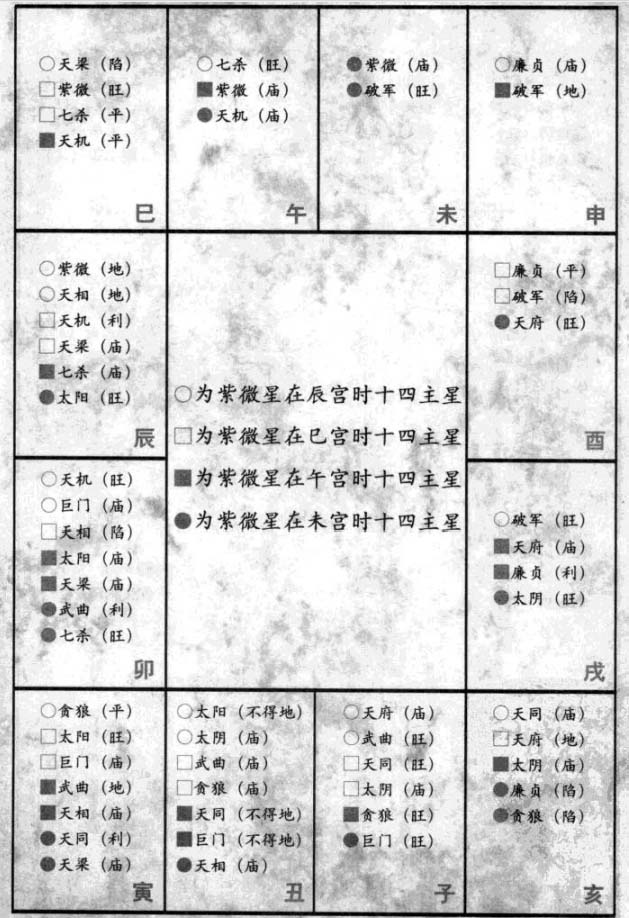 ○天梁（陷）
□紫微（旺）
□七杀（平）
■天机（平）
巳
○七杀（旺）
■紫微（庙）
●天机（庙）
午
●紫微（庙）
●破军（旺）
未
○廉贞（庙）
■破军（地）
申
○紫微（地）
○天相（地）
□天机（利）
□天梁（庙）
■七杀（庙）
●太阳（旺）
辰
○为紫微星在辰宫时十四主星
□为紫微星在巳宫时十四主星
■为紫微星在午宫时十四主星
●为紫微星在未宫时十四主星
□廉贞（平）
□破军（陷）
●天府（旺）
酉
○天机（旺）
○巨门（庙）
□天相（陷）
■太阳（庙）
■天梁（庙）
●武曲（利）
●七杀（旺）
卯
○破军（旺）
■天府（庙）
■廉贞（利）
●太阴（旺）
戌
○贪狼（平）
□太阳（旺）
□巨门（庙）
■武曲（地）
■天相（庙）
●天同（利）
●天梁（庙）
寅
○太阳（不得地）
○太阴（庙）
□武曲（庙）
□贪狼（庙）
■天同（不得地）
■巨门（不得地）
●天相（庙）
丑
○天府（庙）
○武曲（旺）
□天同（旺）
□太阴（庙）
■贪狼（旺）
●巨门（旺）
子
○天同（庙）
□天府（地）
■太阴（庙）
●廉贞（陷）
●贪狼（陷）
亥